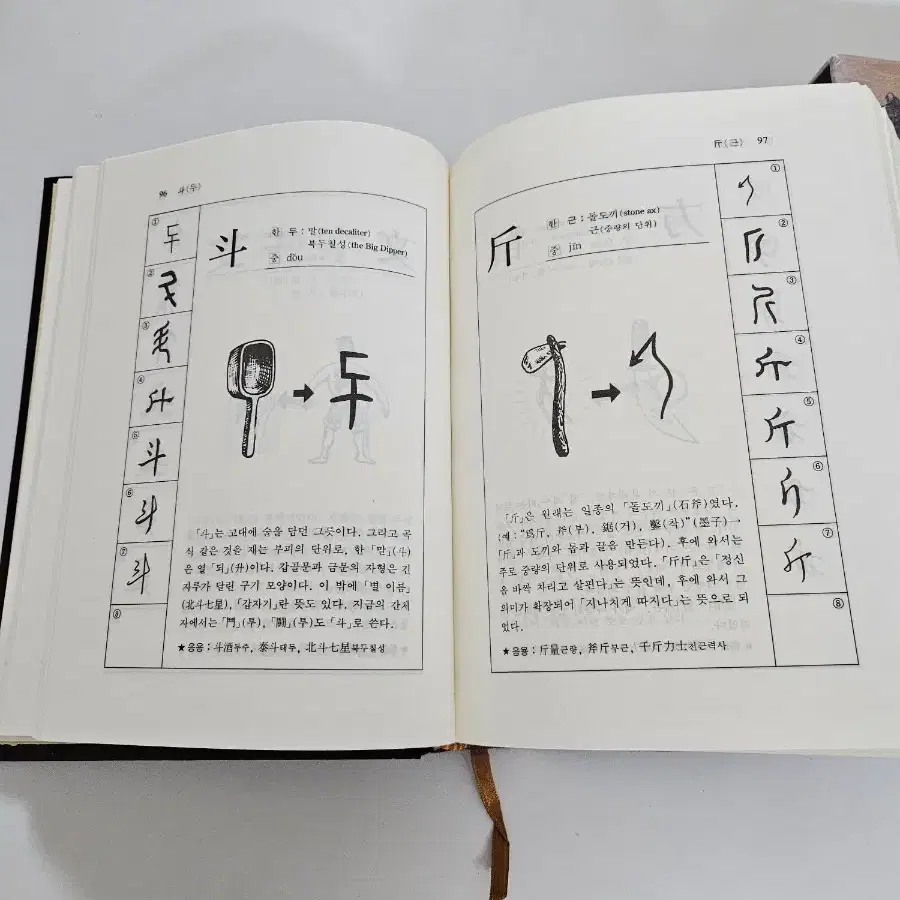 96 斗(두)
斗
한 두 : 말(ten decaliter)
북두칠성(the Big Dipper)
중 dǒu
①
②
③
④
⑤
斗
⑥
斗
⑦
斗
⑧
「斗」는 고대에 술을 담던 그릇이다. 그리고 곡
식 같은 것을 재는 부피의 단위로, 한 「말」(斗)
은 열 「되」(升)이다. 갑골문과 금문의 자형은 긴
자루가 달린 구기 모양이다. 이 밖에 「별 이름」
(北斗七星), 「갑자기」란 뜻도 있다. 지금의 간체
자에서는 「鬥」(투), 「鬪」(투)도 「斗」로 쓴다.
★응용 : 斗酒두주, 泰斗태두, 北斗七星북두칠성
斤(근) 97
斤
한 근 : 돌도끼(stone ax)
근(중량의 단위)
중 jīn
①
②
③
④
斤
⑤
斤
⑥
⑦
斤
⑧
「斤」은 원래는 일종의 「돌도끼」(石斧)였다.
(예 : "爲斤, 斧(부), 鋸(거), 鑿(착)"(墨子)→
「斤」과 도끼와 톱과 끌을 만든다). 후에 와서는
주로 중량의 단위로 사용되었다. 「斤斤」은 「정신
을 바짝 차리고 살핀다」는 뜻인데, 후에 와서 그
의미가 확장되어 「지나치게 따지다」는 뜻으로 되
었다.
★응용 : 斤量근량, 斧斤부근, 千斤力士천근력사